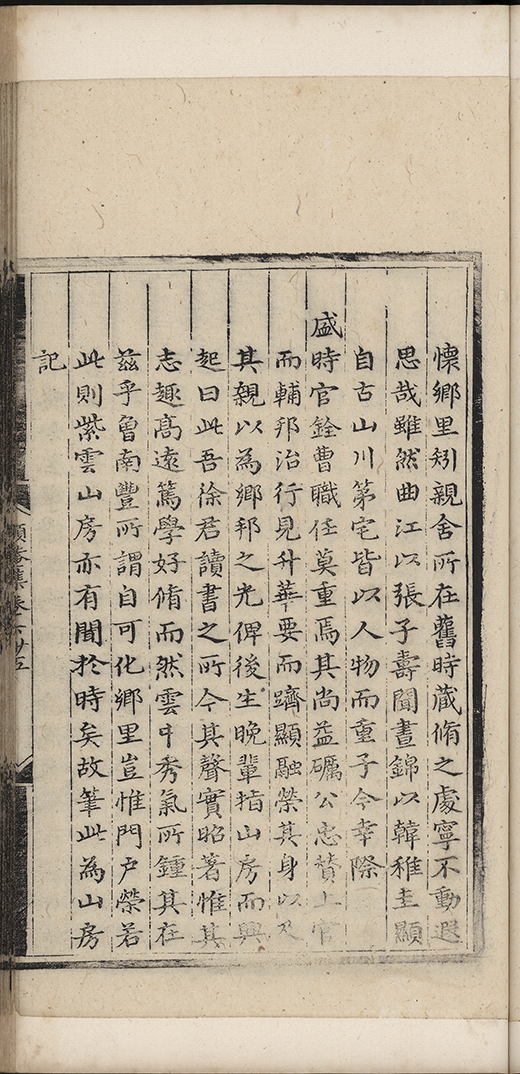 懷鄉里矧親舍所在舊時蔵脩之處寧不動遐
思哉雖然曲江以張子壽聞晝錦以韓稚圭顯
自古山川第宅皆以人物而重子今幸際
盛時官銓曹職任莫重焉其尚益礪公忠賛上官
而輔邦治行見升華要而躋顯融榮其身以及
其親以為鄉邦之光俾後生晚輩指山房而興
起曰此吾徐君讀書之所今其聲實昭著惟其
志趣髙遠篤學好脩而然雲中秀氣所鍾其在
兹乎曾南豐所謂自可化鄉里豈惟門戸榮若
此則紫雲山房亦有聞於時矣故筆此為山房
記
頥菴集卷六 廿五